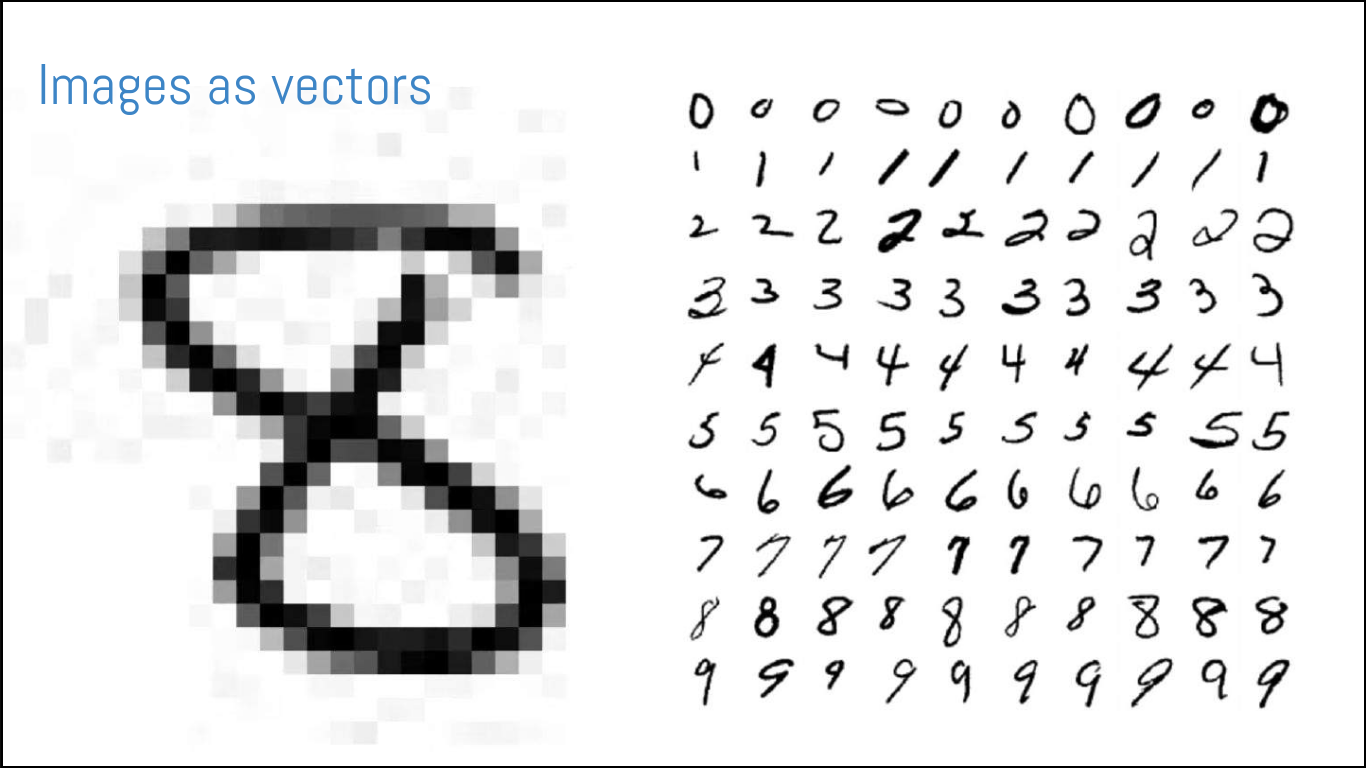 Images as vectors
8
0 0 0 0 0 0 0 0 0 0
1 1 1 1 1 1 1 1 1 1
2 2 2 2 2 2 2 2 2 2
3 3 3 3 3 3 3 3 3 3
4 4 4 4 4 4 4 4 4 4
5 5 5 5 5 5 5 5 5 5
6 6 6 6 6 6 6 6 6 6
7 7 7 7 7 7 7 7 7 7
8 8 8 8 8 8 8 8 8 8
9 9 9 9 9 9 9 9 9 9